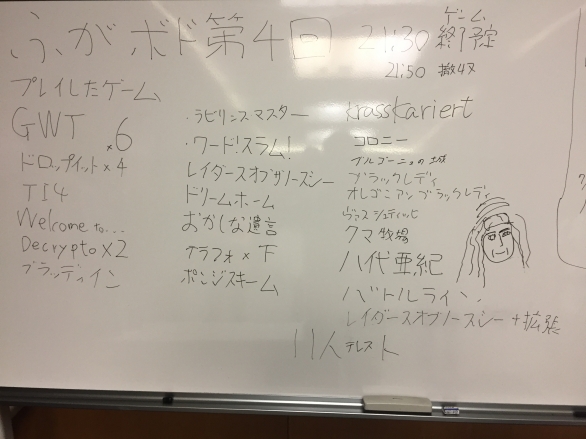 ふがボド第4回
21:30 ゲーム終了予定
21:50 撤収
プレイしたゲーム
GWT ×6
ドロップイット×4
TI4
Welcome to...
Decrypto×2
ブラッディイン
・ラビリンスマスター
・ワード!スラム!
レイダースオブザノースシー
ドリームホーム
おかしな遺言
ケラフォ×下
ポンジスキーム
krasskariert
コロニー
ブルゴーニュの城
ブラックレディ
オレゴニアンブラックレディ
ヴァスシュティッヒ
クマ牧場
八代亜紀
バトルライン
レイダースオブノースシー+拡張
11人
テレスト